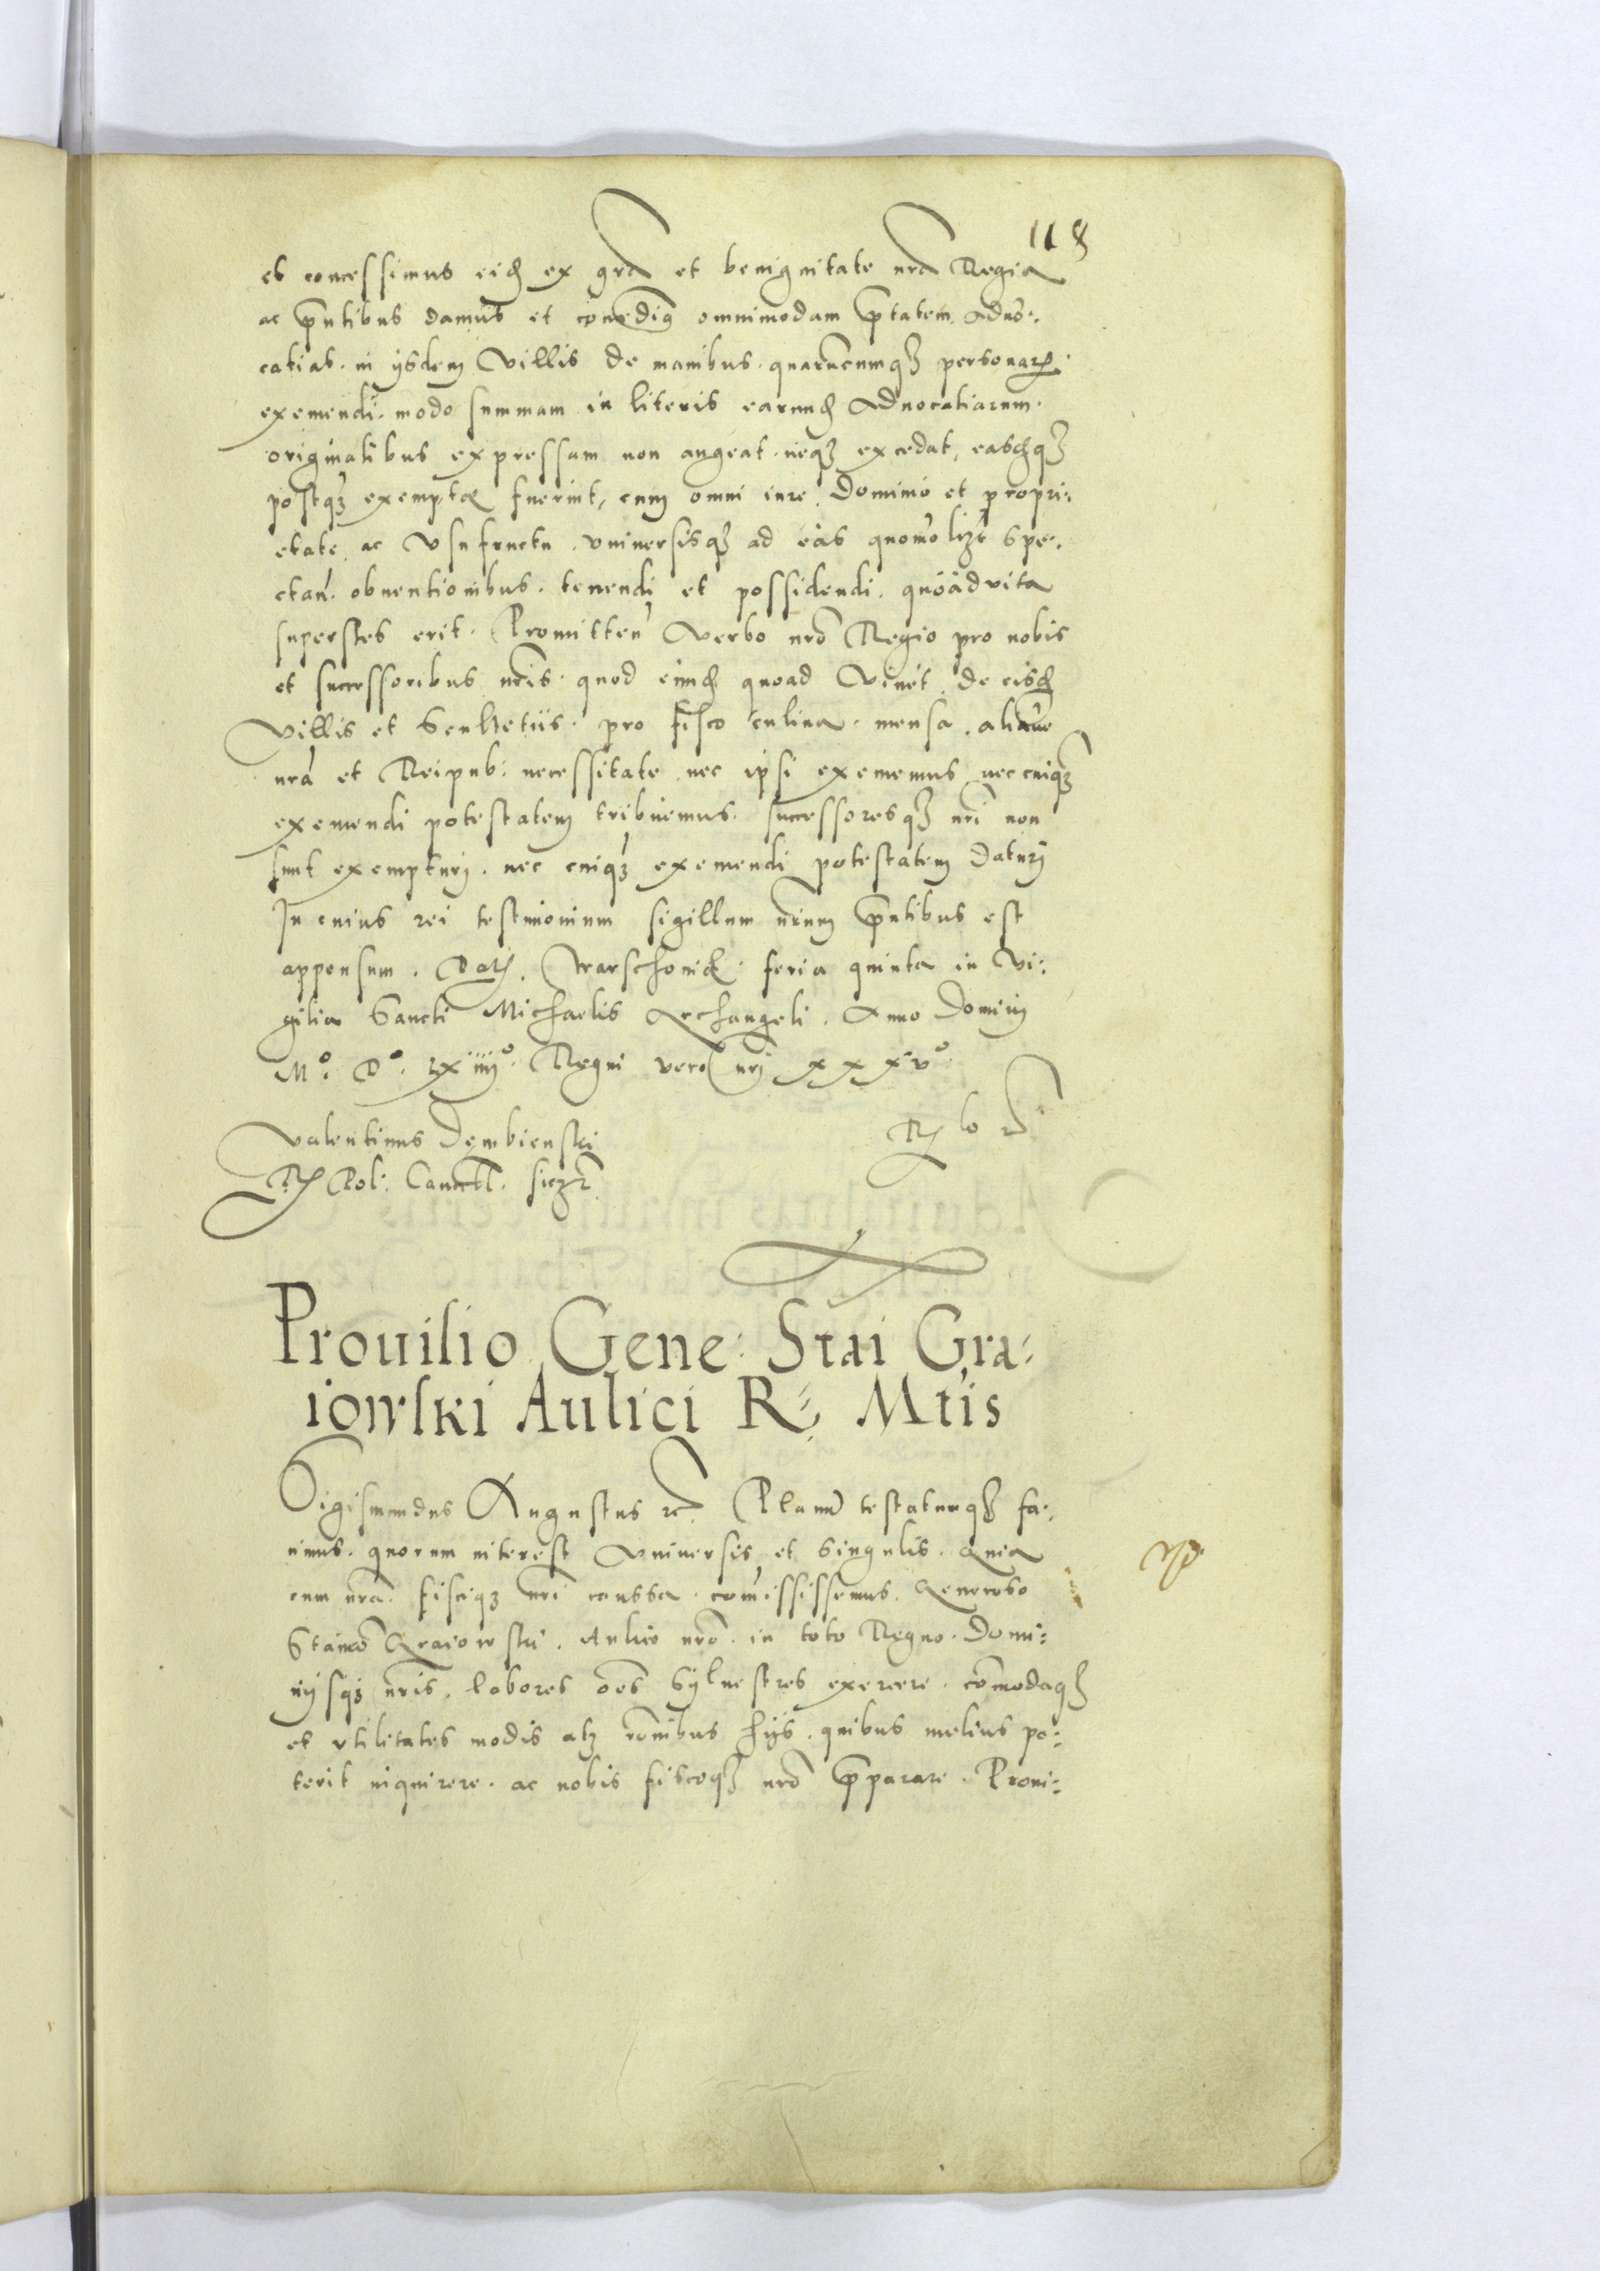 118
et concessimus eid ex gra et benignitate nra Regia
ac pntibus damus et concedimus omnimodam ptatem Aduo:
catias in ijsdem Villis de manibus quarucumq personar
exemendi modo summam in literis earund Aduocatiarum
originalibus expressam non augeat neq excedat, easdq
postq exemptæ fuerint, cum omni iure Dominio et propri:
etate ac Vsufructu Vniuersisq ad eas quomolizt spe:
ctan obuentionibus tenendi et possidendi quoad vita
superstes erit. Promitten Verbo nro Regio pro nobis
et successoribus nris quod eund quoad Vixet de eisd
Villis et Scultetiis pro fisco culina mensa aliaue
nra et Reipub: necessitate nec ipsi exememus nec cuiq
exemendi potestatem tribuemus successoresq nri non
sunt exempturj nec cuiq exemendi potestatem daturj
In cuius rei testimonium sigillum nrum pntibus est
appensum. Dat Warschouiæ feria quinta in Vi:
gilia Sancti Michaelis Archangeli. Anno Dominj
Mo Do LXiiijo Regni vero nrj xxxvo
Valentinus Dembienski
R Pol: Cancell: sszt
Prouisio Gene: Stai Gra:
iowski Aulici R: Mtis
Sigismundus Augustus rc Planu testatumq fa:
cimus quorum interest Vniuersis et Singulis Quia
cum nra fisciq nri caussa comississemus Generoso
Stanco Graiowski Aulico nro in toto Regno Domi:
nijsq nris labores oes Syluestres exercere comodaq
et vtilitates modis atq ronibus hijs quibus melius po:
terit inquirere ac nobis fiscoq nro pparare Proui: